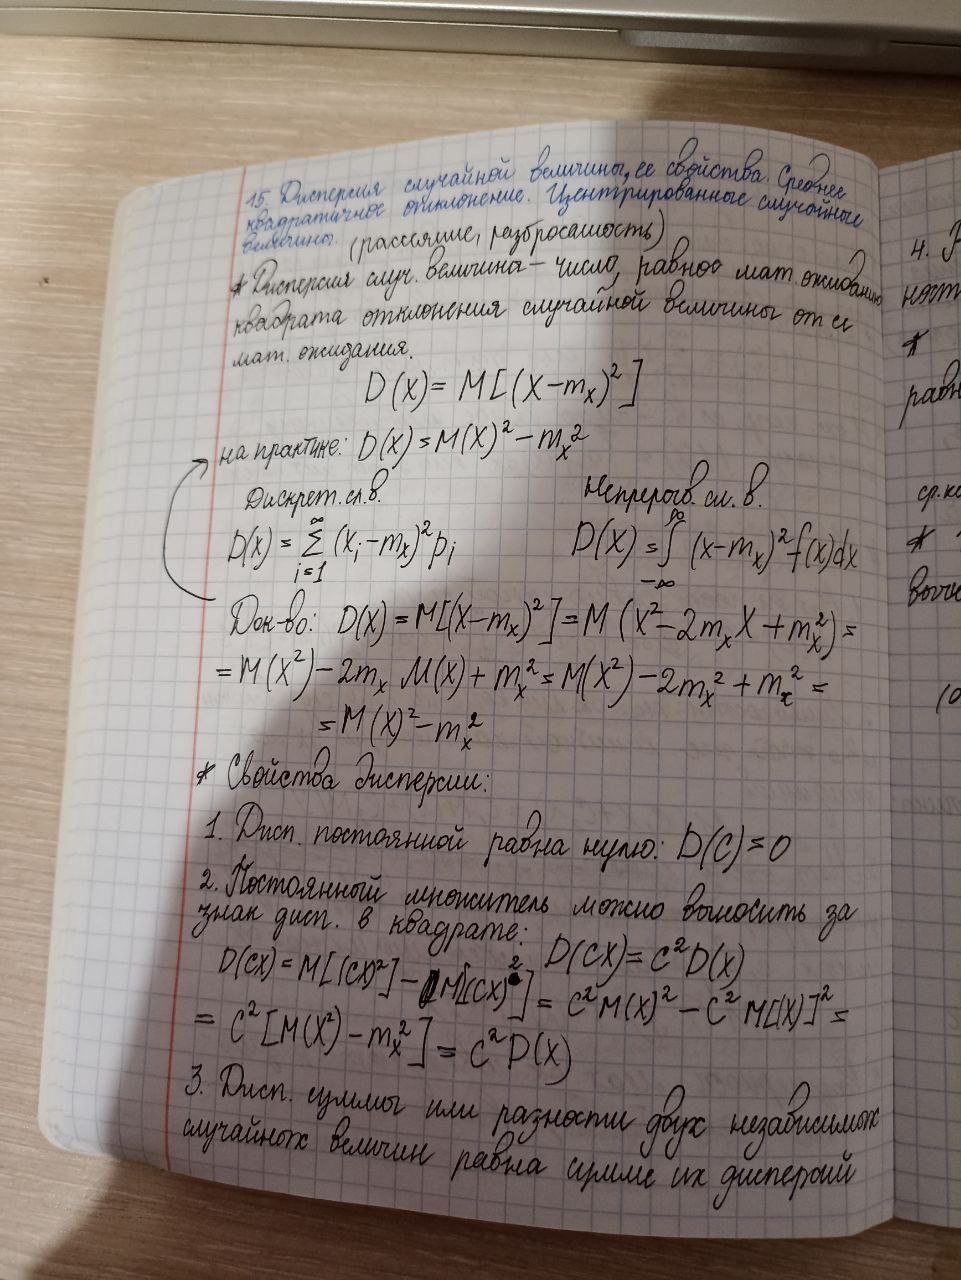 15. Дисперсия случайной величины, ее свойства. Среднее
квадратичное отклонение. Центрированные случайные
величины. (рассеяние, разбросанность)
* Дисперсия случ. величины – число, равное мат. ожиданию
квадрата отклонения случайной величины от её
мат. ожидания.
D(X) = M[(X-mₓ)²]
на практике: D(X) = M(X)² - mₓ²
Дискрет. сл. в. Непрерыв. сл. в.
D(X) = ∞ Σ i=1 (xᵢ-mₓ)²pᵢ D(X) = ∞ ∫ -∞ (x-mₓ)²f(x)dx
Док-во: D(X) = M[(X-mₓ)²] = M(X²-2mₓX+mₓ²) =
= M(X²) - 2mₓ M(X) + mₓ² = M(X²) - 2mₓ² + mₓ² =
= M(X)² - mₓ²
* Свойства дисперсии:
1. Дисп. постоянной равна нулю: D(C) = 0
2. Постоянный множитель можно выносить за
знак дисп. в квадрате: D(CX) = C²D(X)
D(CX) = M[(CX)²] - M[(CX)²] = C²M(X)² - C²M[(X)]² =
= C²[M(X²) - mₓ²] = C²D(X)
3. Дисп. суммы или разности двух независимых
случайных величин равна сумме их дисперсий
4.
*
равн
ср. к
*
вычи